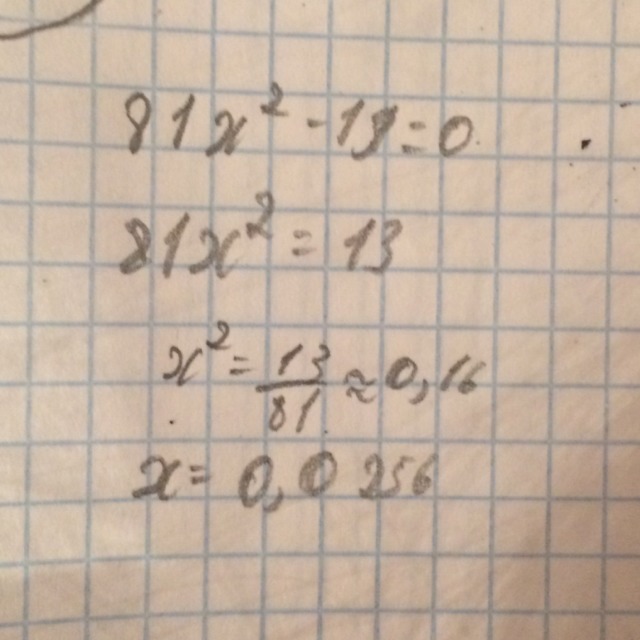 81x² - 13 = 0
81x² = 13
x² = 13/81 ≈ 0,16
x = 0,0256